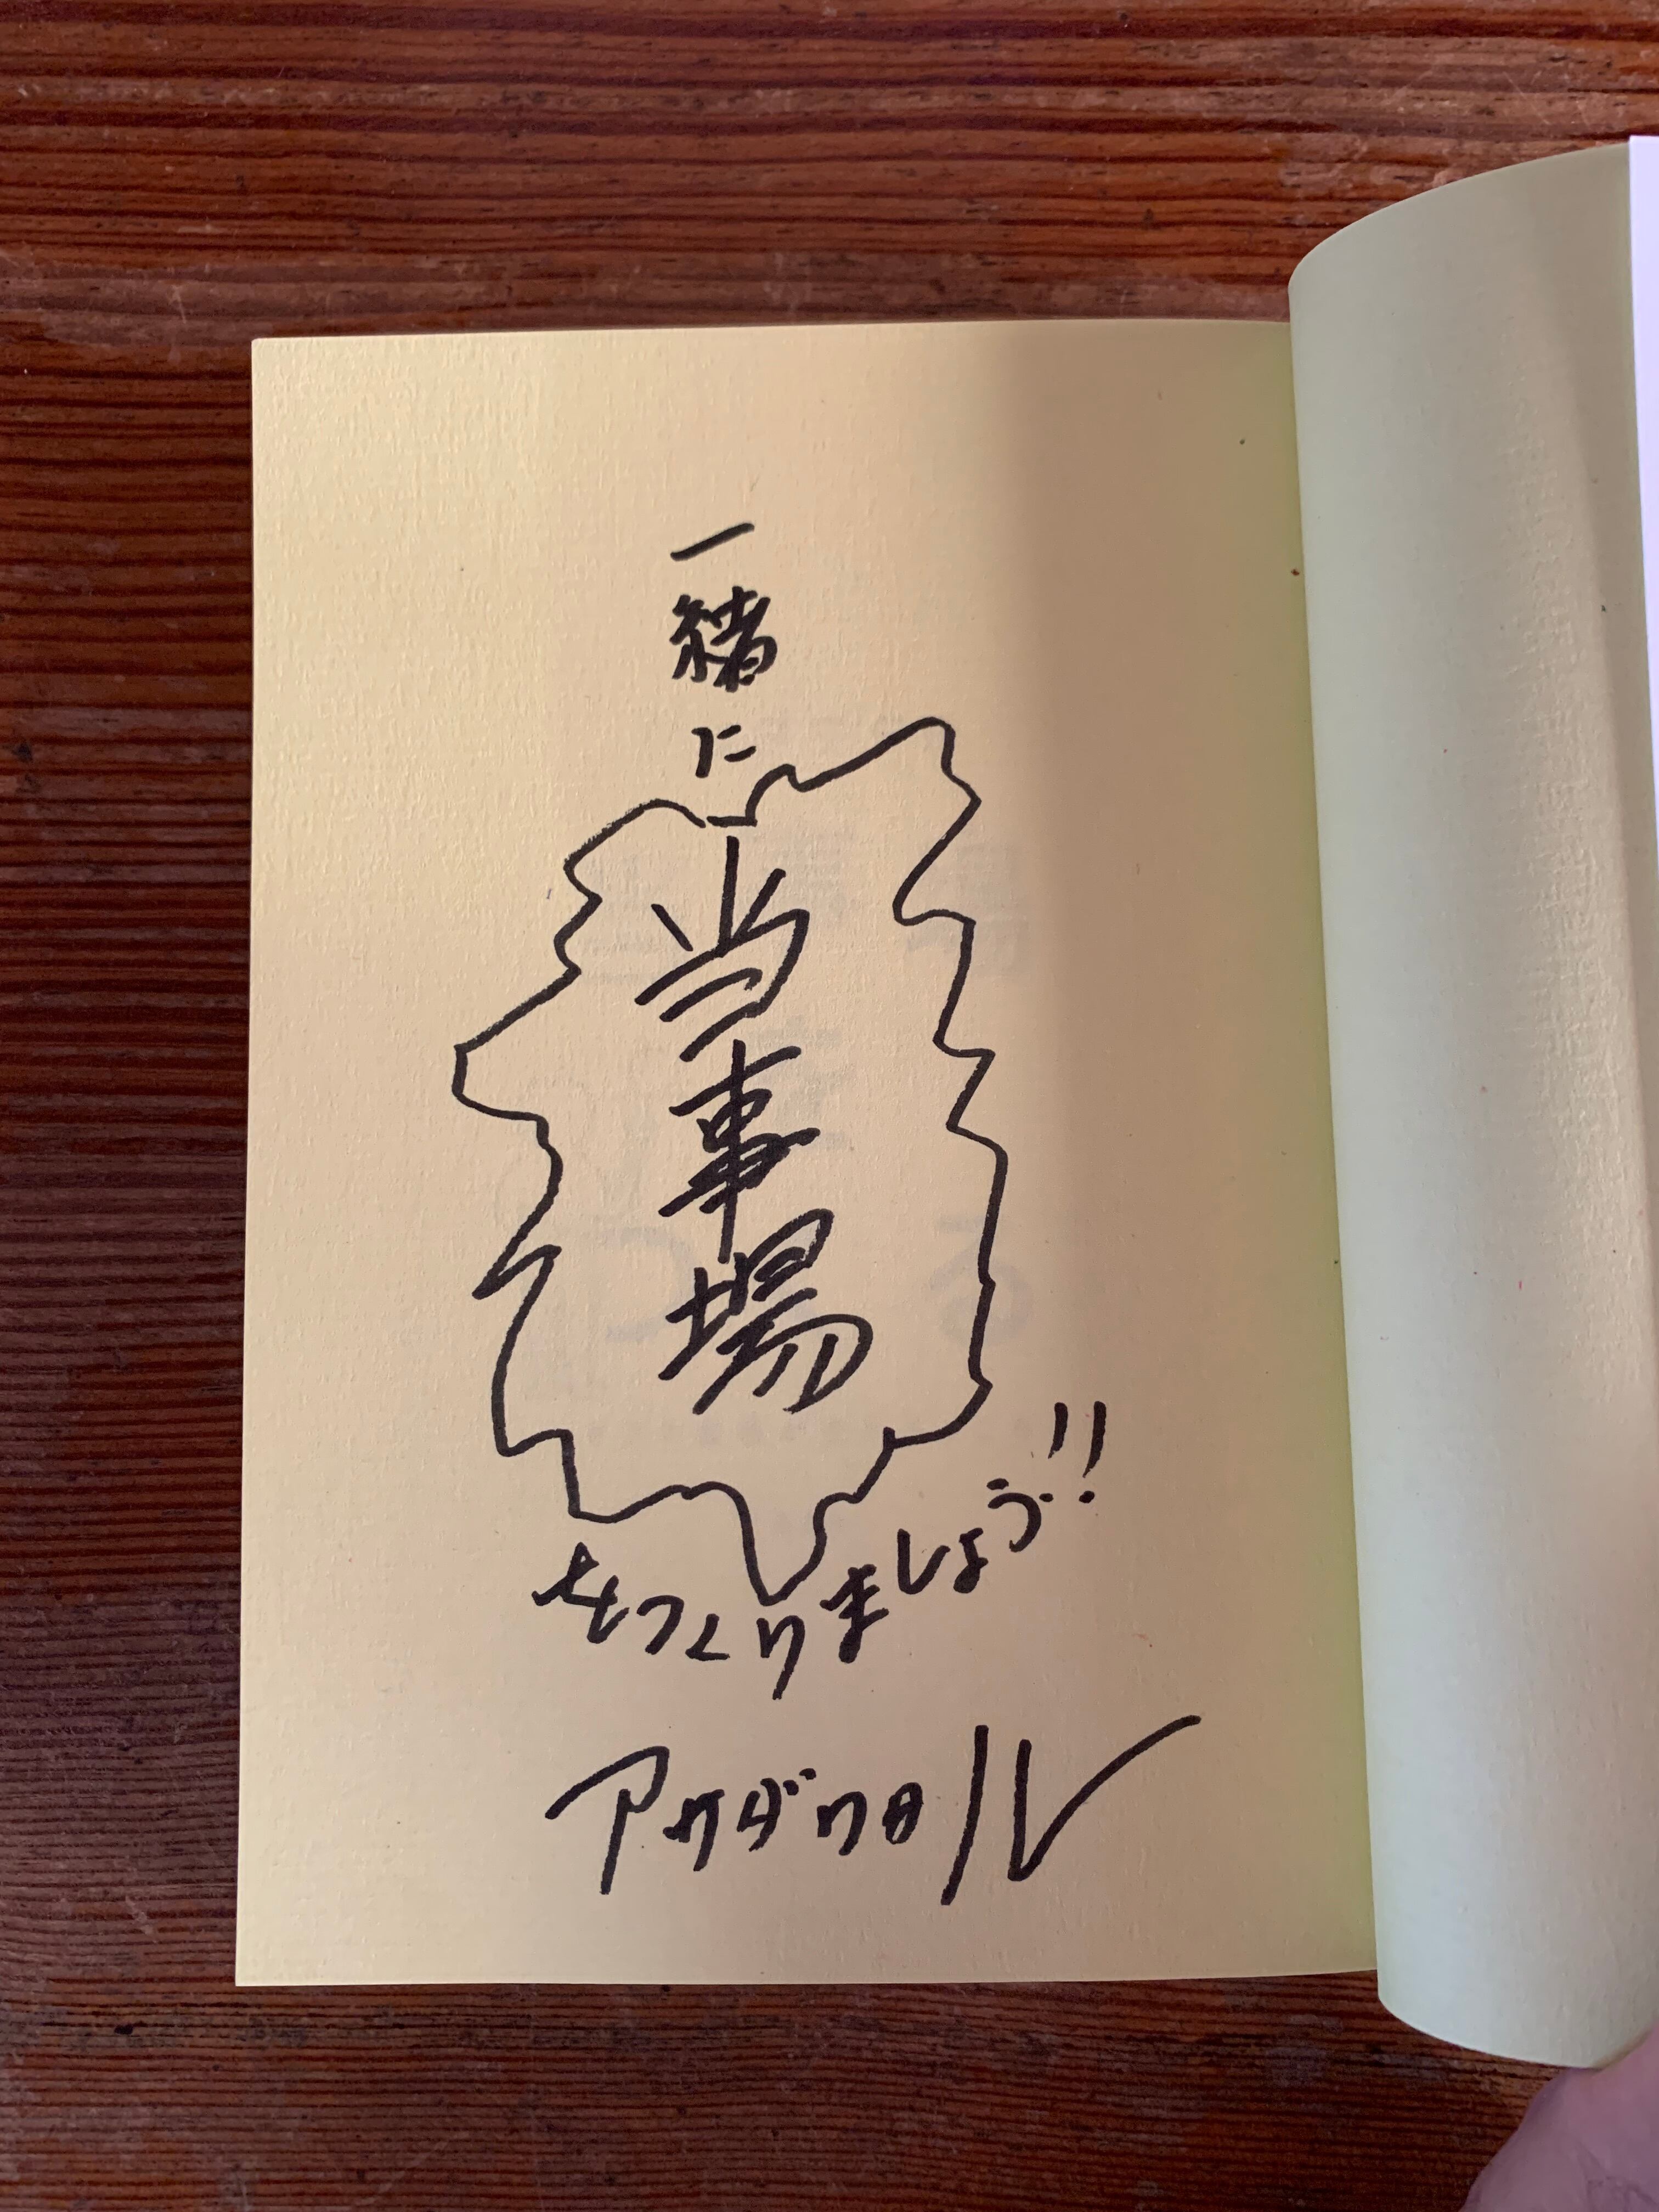 一緒に
当事場
をつくりましょう!!
アサダワタル